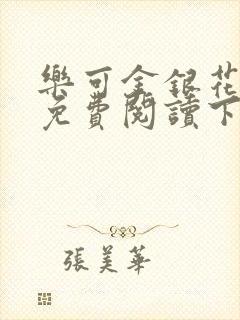 樂可金銀花
免費閱讀下
張美華